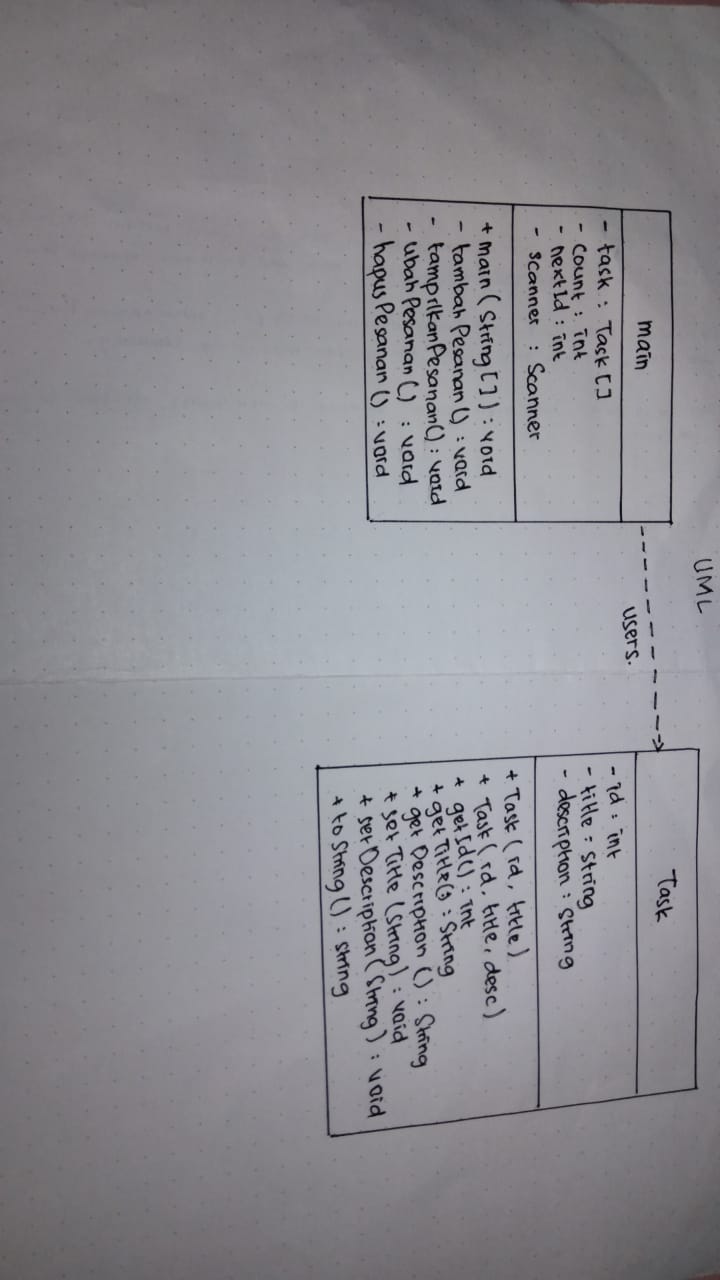 UML
main
- task : Task []
- count : int
- nextId : int
- scanner : Scanner
+ main (String []) : void
- tambahPesanan () : void
- tampilkanPesanan () : void
- ubahPesanan () : void
- hapusPesanan () : void
users.
Task
- id : int
- title : String
- description : String
+ Task (id, title)
+ Task (id, title, desc)
+ getId () : int
+ getTitle () : String
+ getDescription () : String
+ setTitle (String) : void
+ setDescription (String) : void
+ toString () : string